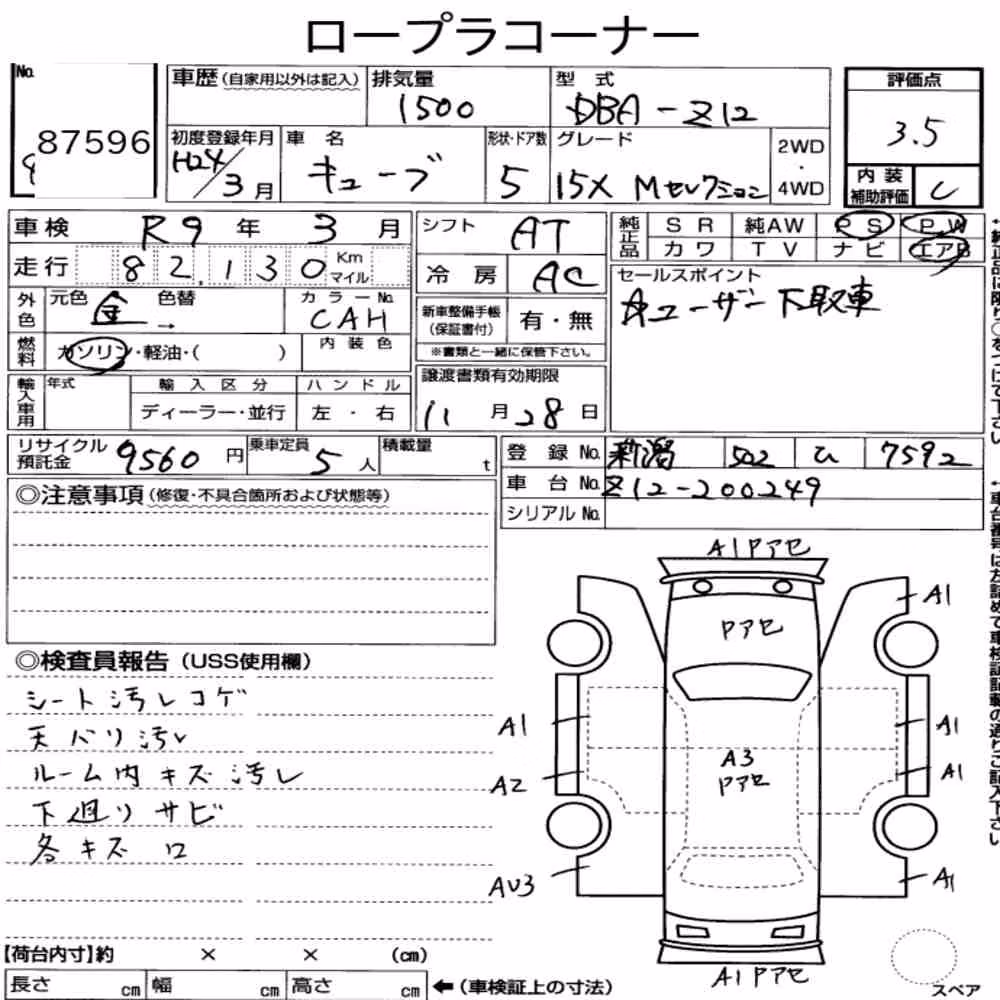 ロープラコーナー
No. 87596
車歴(自家用以外は記入) 排気量 1500 型式 DBA-Z12 評価点 3.5
初度登録年月 H24/3月 車名 キューブ 形状・ドア数 5 グレード 15X Mセレクション 2WD・4WD
内装補助評価 C
車検 R9年 3月 シフト AT 純正品 SR 純AW PS PW
走行 82,130 Km マイル 冷房 AC カワ TV ナビ エアB
外色 元色 金 色替 → カラーNo. CAH
新車整備手帳(保証書付) 有・無
※書類と一緒に保管下さい。
セールスポイント
☆ユーザー下取車
燃料 ガソリン・軽油・( ) 内装色
輸入車用 年式 輸入区分 ハンドル
ディーラー・並行 左・右
譲渡書類有効期限
11月28日
リサイクル預託金 9560円 乗車定員 5人 積載量 t
登録No. 新潟 502 ひ 7592
車台No. Z12-200249
シリアルNo.
◎注意事項(修復・不具合箇所および状態等)
◎検査員報告(USS使用欄)
シート汚レコゲ
天バリ汚レ
ルーム内キズ汚レ
下廻りサビ
各キズ
A1 Pアセ
A1
Pアセ
A1
A1
A3
Pアセ
A2
A1
AU3
A1
A1 Pアセ
スペア
【荷台内寸】約 × × (cm)
長さ cm 幅 cm 高さ cm ←(車検証上の寸法)